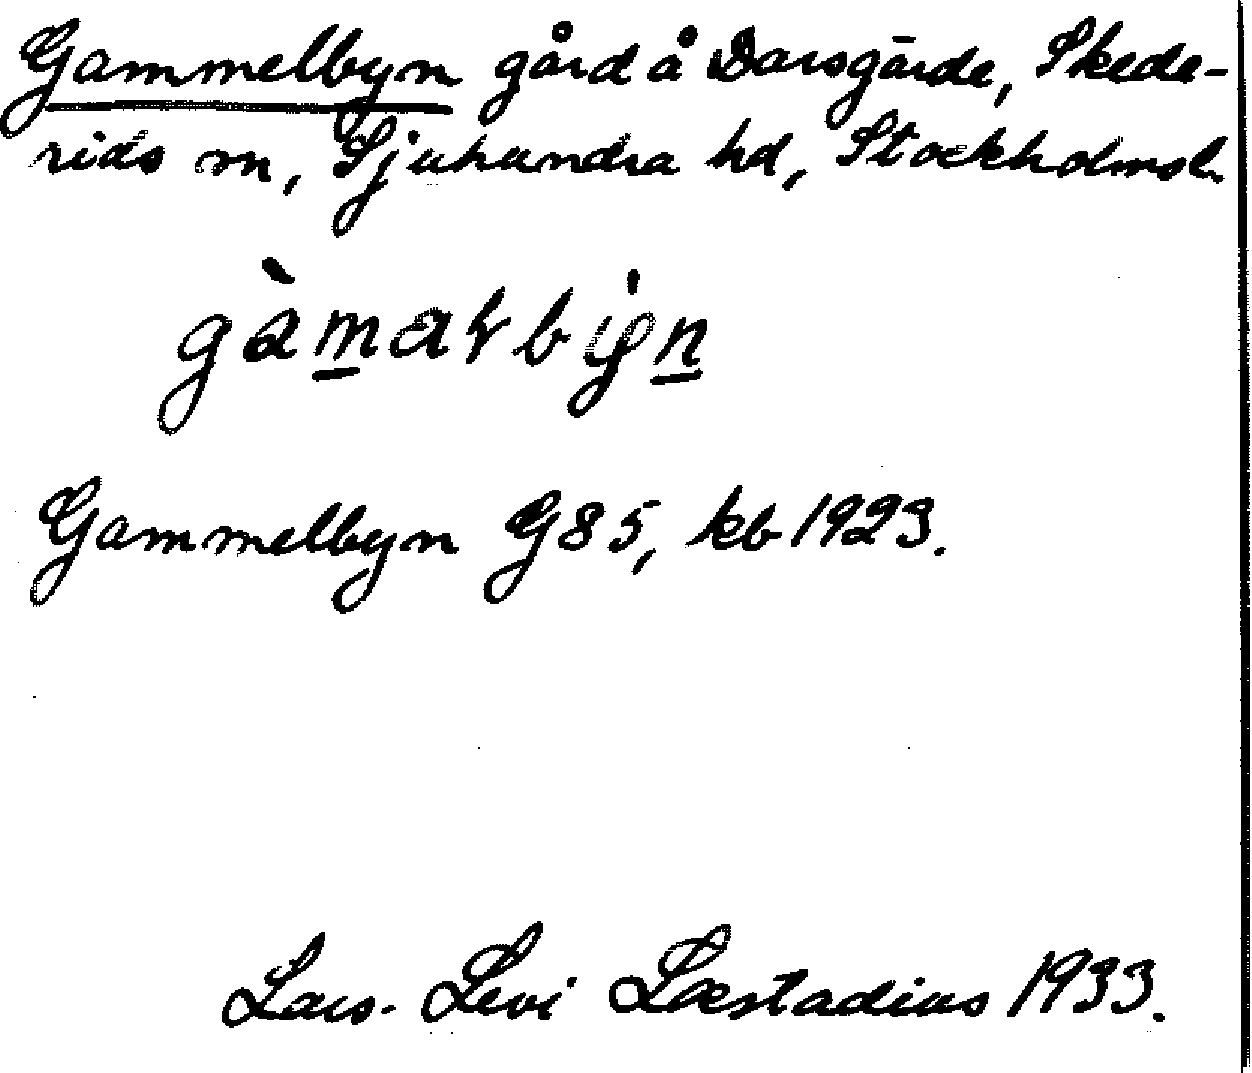 Gammelbyn gård å Darsgärde, Skede-
rids sn, Sjuhundra hd, Stockholmsl.
Gammelbyn G85, kb 1923.
Lars-Levi Læstadius 1933.